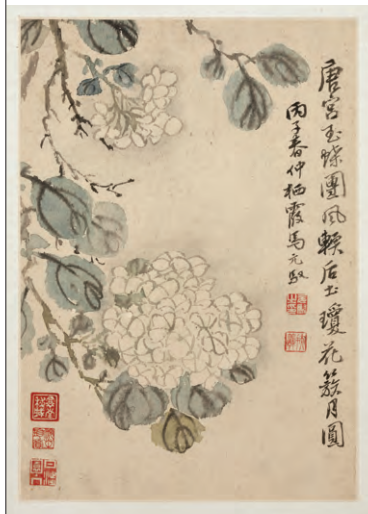 唐宮玉蝶團風輭后土瓊花簇月圓
丙子春仲栖霞馬元馭